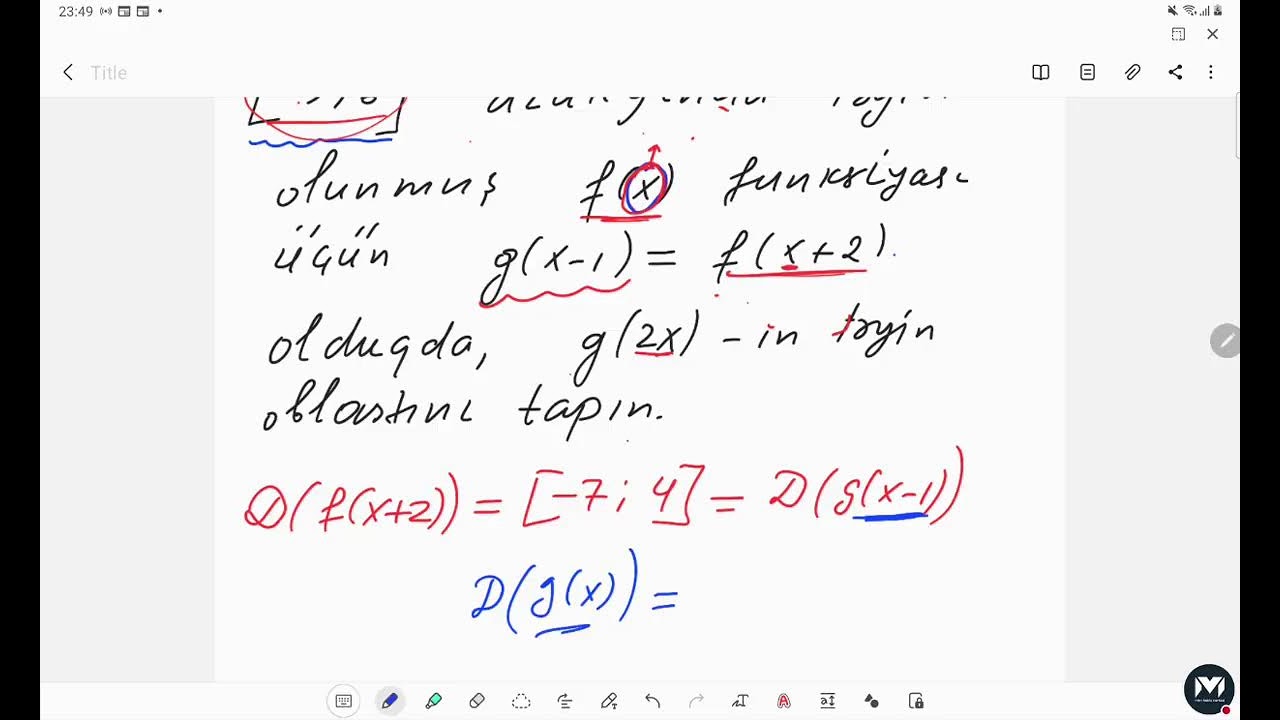 23:49
Title
olunmuş f(x) funksiyası
üçün g(x-1) = f(x+2).
olduqda, g(2x) - in təyin
oblastını tapın.
D(f(x+2)) = [-7; 4] = D(g(x-1))
D(g(x)) =